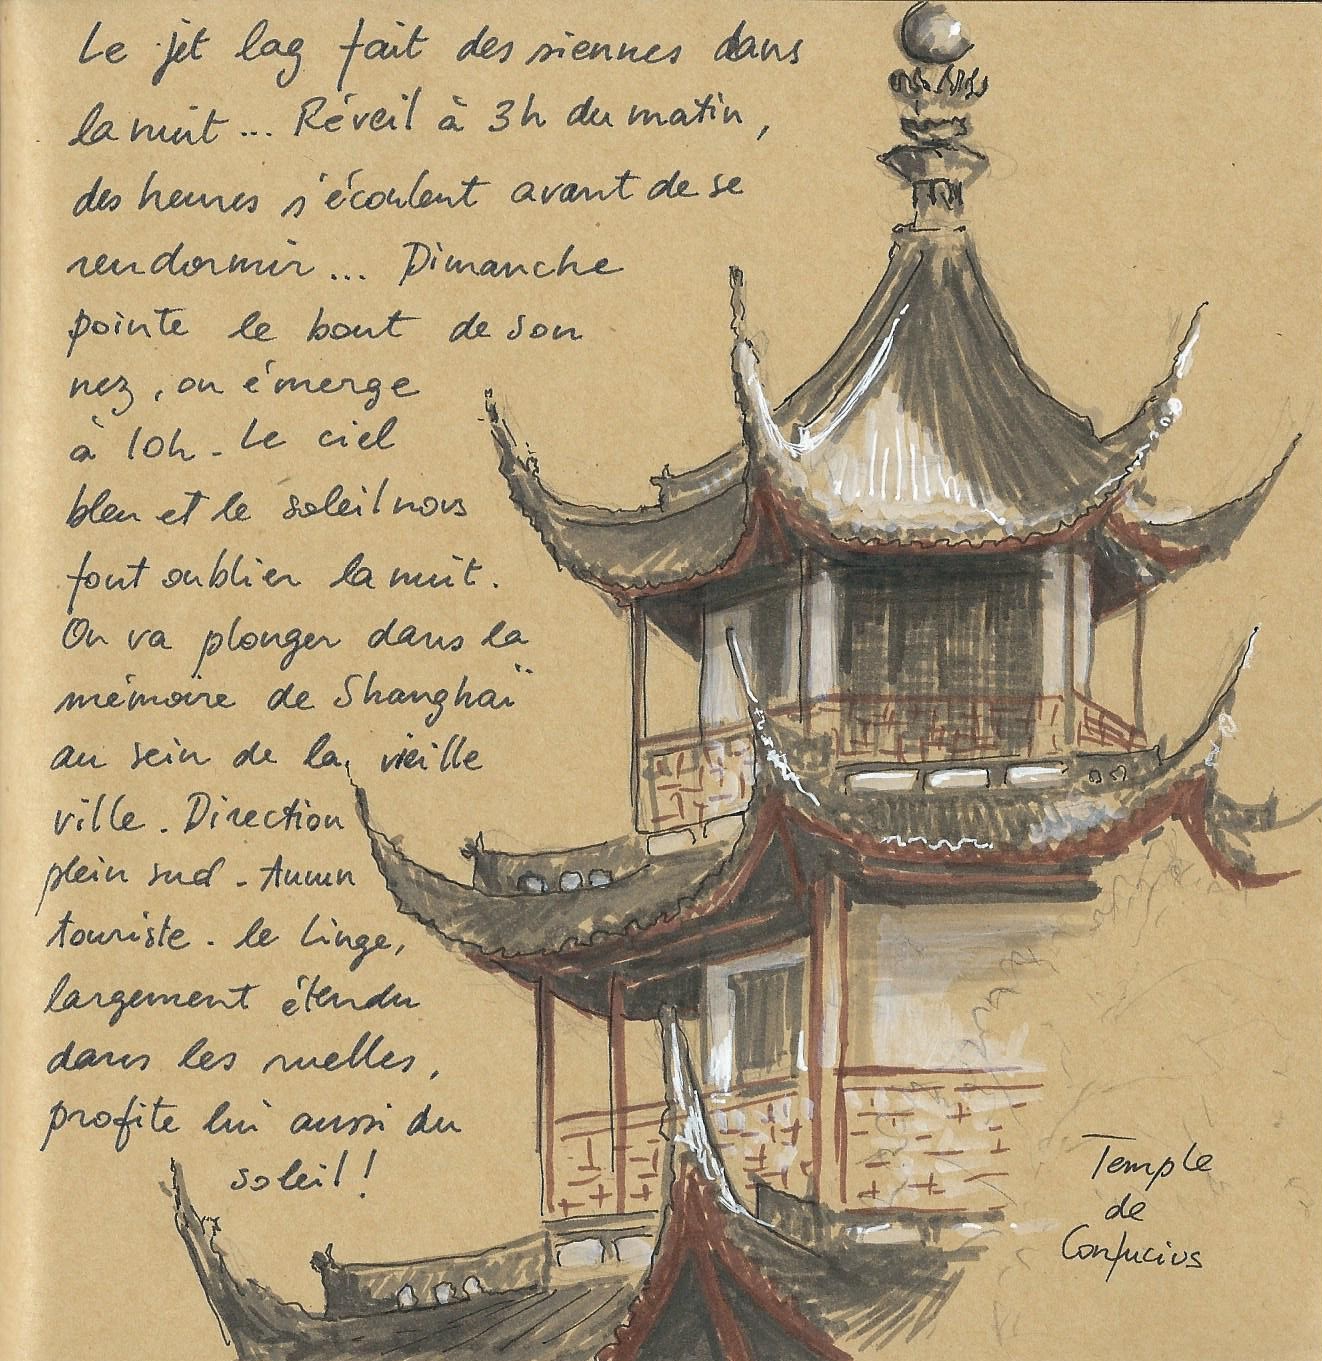 Le jet lag fait des siennes dans
la nuit... Réveil à 3h du matin,
des heures s'écoulent avant de se
rendormir... Dimanche
pointe le bout de son
nez, on émerge
à 10h. Le ciel
bleu et le soleil nous
font oublier la nuit.
On va plonger dans la
mémoire de Shanghaï
au sein de la vieille
ville. Direction
plein sud. Aucun
touriste. Le linge,
largement étendu
dans les ruelles,
profite lui aussi du
soleil!
Temple
de
Confucius